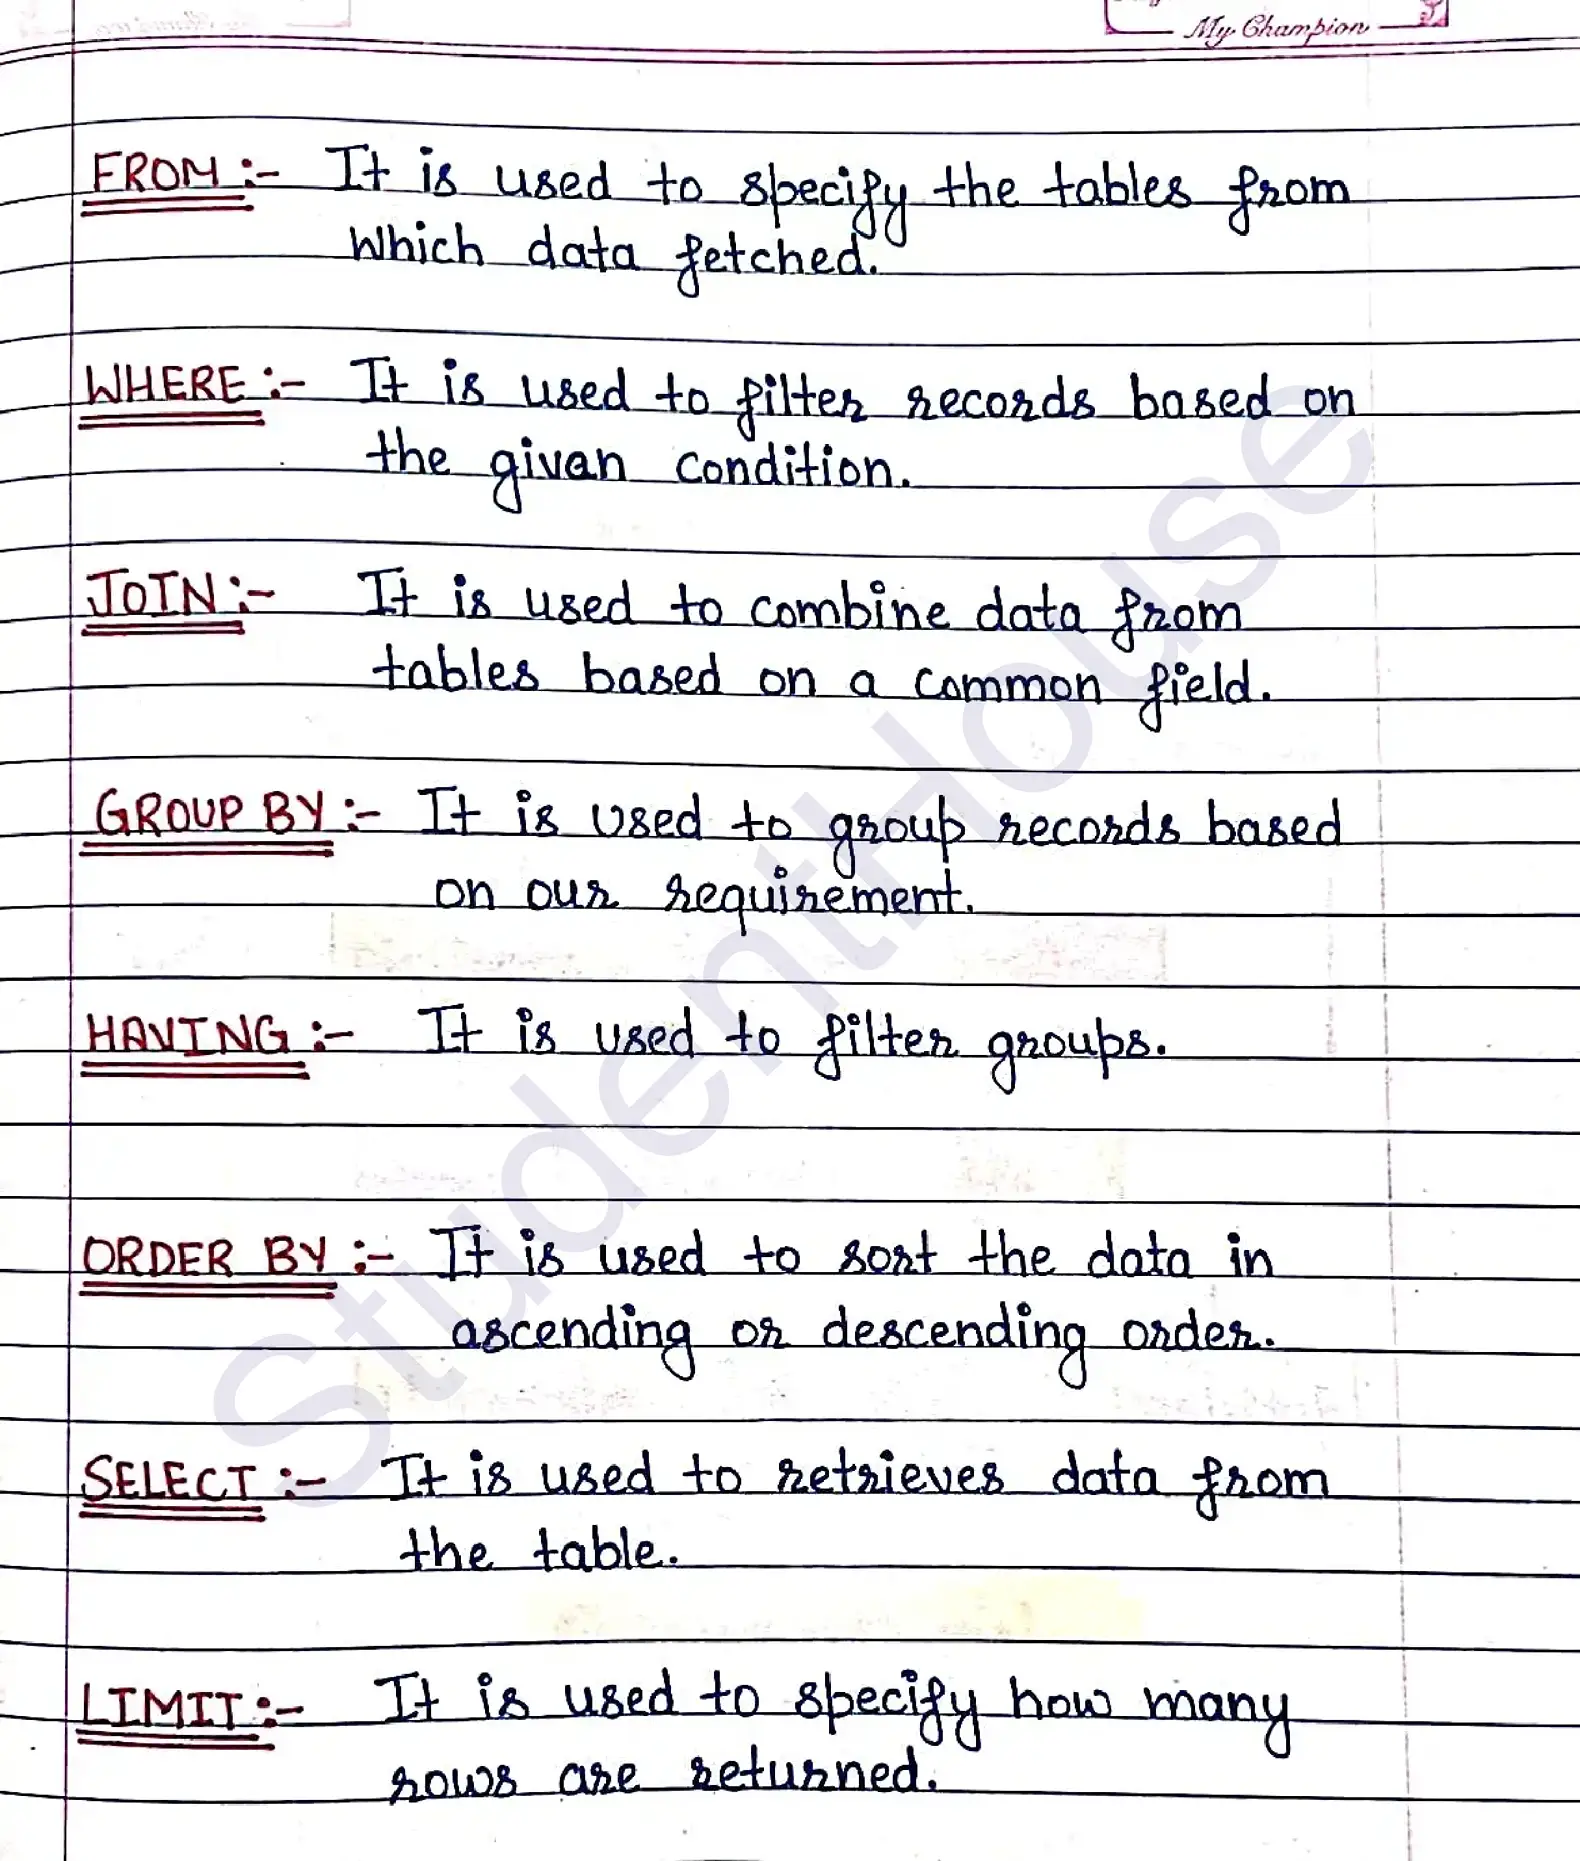 My Champion
FROM :- It is used to specify the tables from
which data fetched.
WHERE :- It is used to filter records based on
the givan condition.
JOIN :- It is used to combine data from
tables based on a common field.
GROUP BY :- It is used to group records based
on our requirement.
HAVING :- It is used to filter groups.
ORDER BY :- It is used to sort the data in
ascending or descending order.
SELECT :- It is used to retrieves data from
the table.
LIMIT :- It is used to specify how many
rows are returned.
StudentHouse